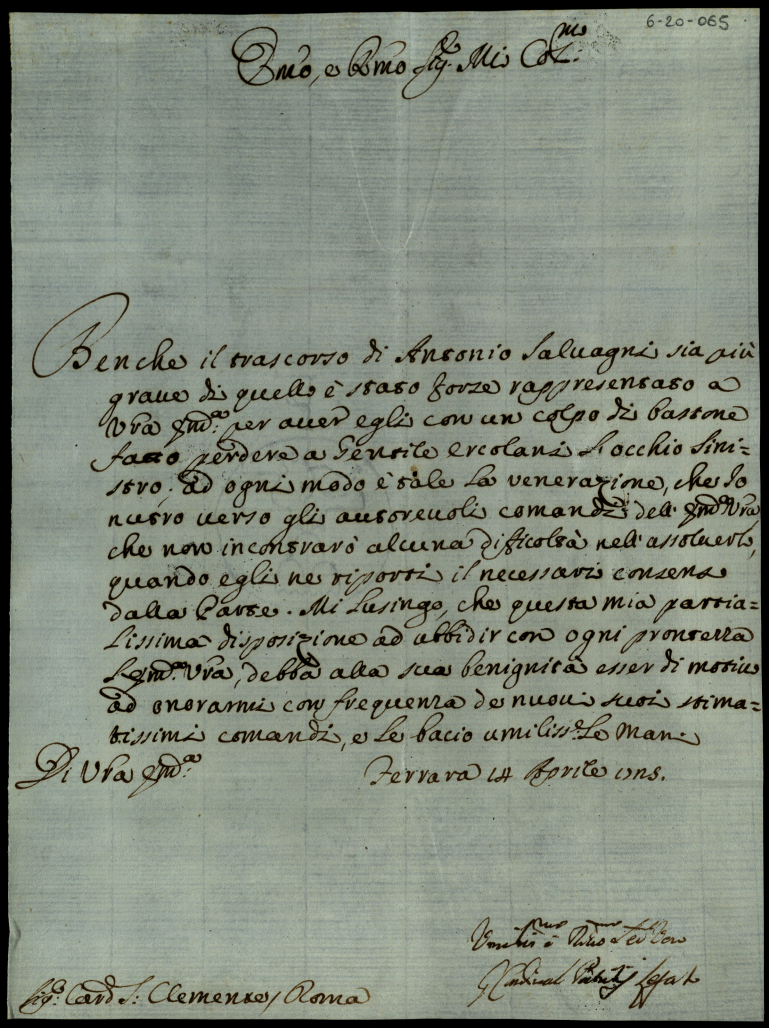 6-20-065
Emo, e Rmo Sig. Mio Col.mo
Benche il trascorso di Antonio Salvagni sia più
grave di quello è stato forze rappresentato a
Vra Emza per aver egli con un colpo di bastone
fatto perdere a Gentile Ercolani l'occhio sini=
stro; ad ogni modo è tale la venerazione, che Io
nutro verso gli autorevoli comandi dell' Emza Vra
che non incontrarò alcuna dificoltà nell' assolverlo,
quando egli ne riporti il necessario consenso
dalla Parte. Mi lusingo, che questa mia parzia=
lissima disposizione ad ubbidir con ogni prontezza
l'Emza Vra, debba alla sua benignità esser di motivo
ad onorarmi con frequenza de nuovi suoi stima=
tissimi comandi, e le bacio umiliss.e le Mani.
Di Vra Emza Ferrara 14 Aprile
Sig. Card S. Clemente / Roma